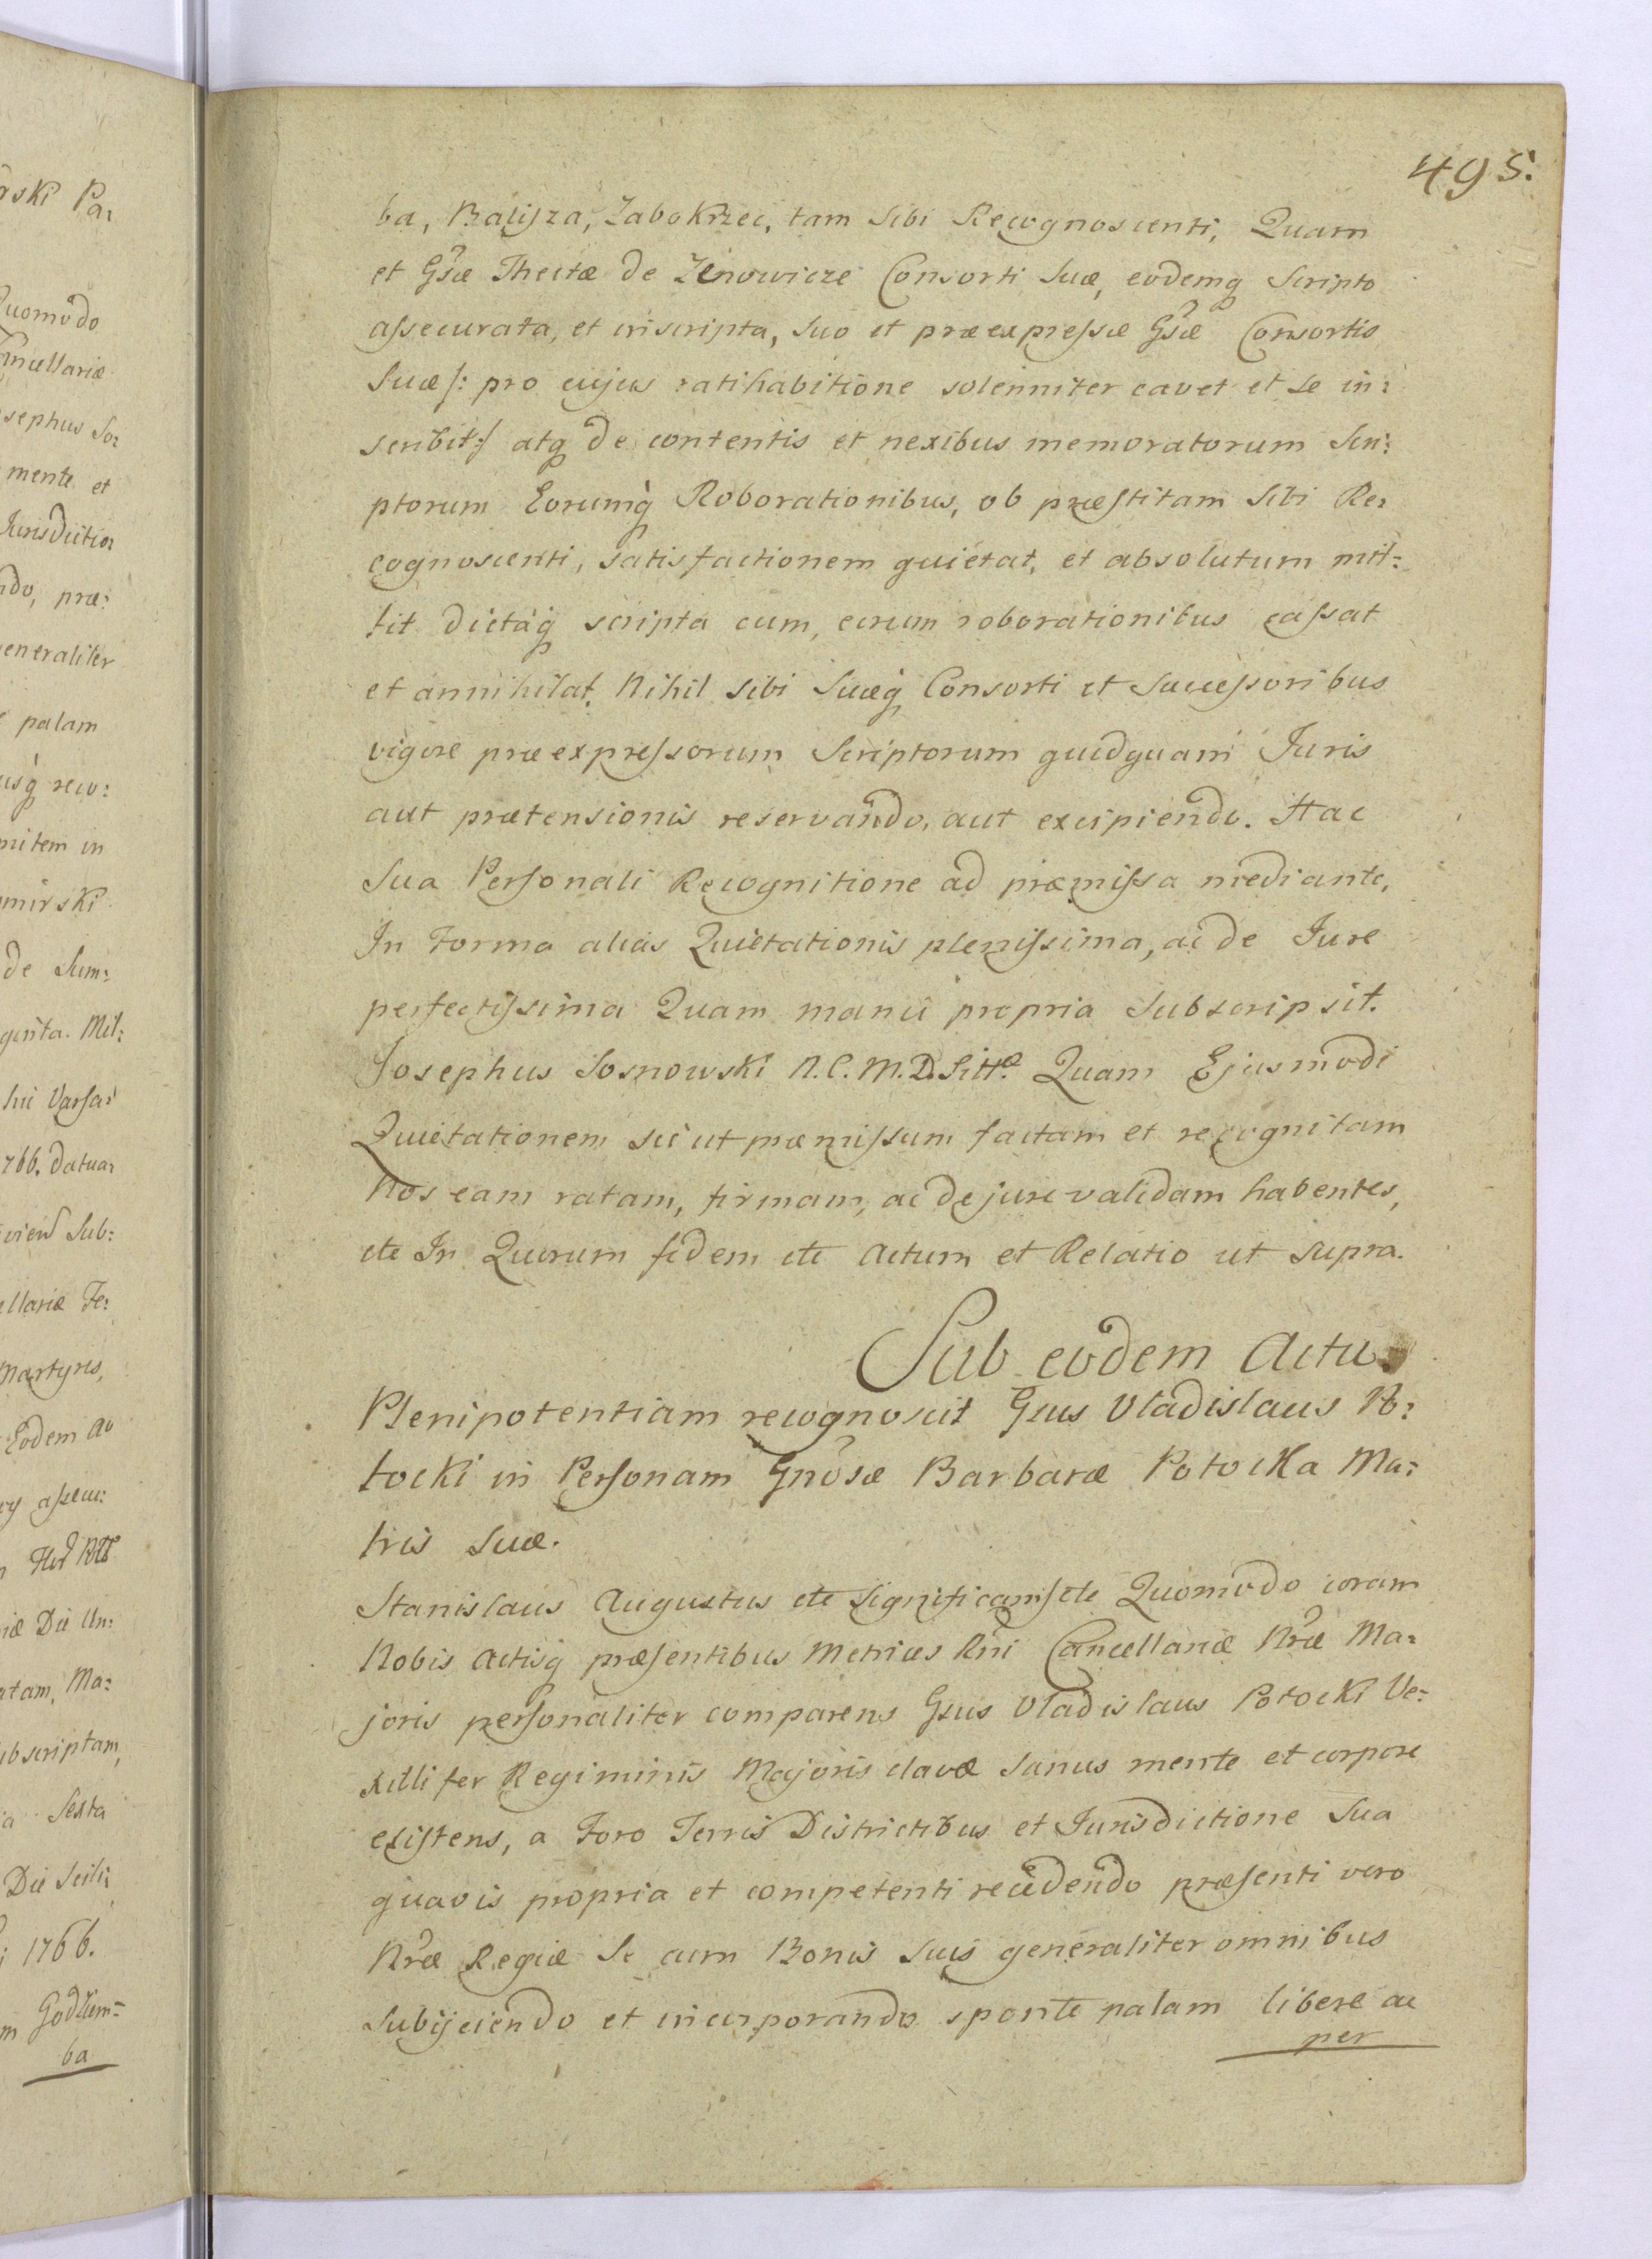 495.
ba, Balisza, Zabokrzec, tam Sibi Recognoscenti, Quam
et Gsæ Theclæ de Zenowicze Consorti Suæ, eodemq Scripto
assecurata, et inscripta, Suo et præexpressæ Gsæ Consortis
Suæ /: pro cujus ratihabitione solenniter cavet et se in:
scribit :/ atq de contentis et nexibus memoratorum Scri:
ptorum Eorumq Roborationibus, ob præstitam Sibi Re:
cognoscenti, satisfactionem quietat, et absolutum mit:
tit dictaq scripta cum eorum roborationibus cassat
et annihilat. Nihil Sibi Suæq Consorti et Successoribus
vigore præexpressorum Scriptorum quidquam Juris
aut prætensionis reservando, aut excipiendo. Hac
Sua Personali Recognitione ad præmissa mediante,
In Forma alias Quietationis plenissima, ac de Jure
perfectissima Quam manu propria Subscripsit.
Josephus Sosnowski N. C. M. D. Littæ Quam Ejusmodi
Quietationem sicut præmissum factam et recognitam
Nos eam ratam, firmam, ac de jure validam habentes,
etc In Quorum fidem etc Actum et Relatio ut Supra.
Sub eodem Actu.
Plenipotentiam recognoscit Gsus Vladislaus Po:
tocki in Personam Gnosæ Barbaræ Potocka Ma:
tris Suæ.
Stanislaus Augustus etc Significamus etc Quomodo coram
Nobis Actisq præsentibus Metrices Rni Cancellariæ Nræ Ma:
joris personaliter comparens Gsus Vladislaus Potocki Ve:
xillifer Regiminis Majoris clavæ Sanus mente et corpore
existens, a Foro Terris Districtibus et Jurisdictione Sua
quavis propria et competenti recedendo præsenti vero
Nræ Regiæ Se cum Bonis Suis generaliter omnibus
Subijciendo et incorporando sponte palam libere ac
per